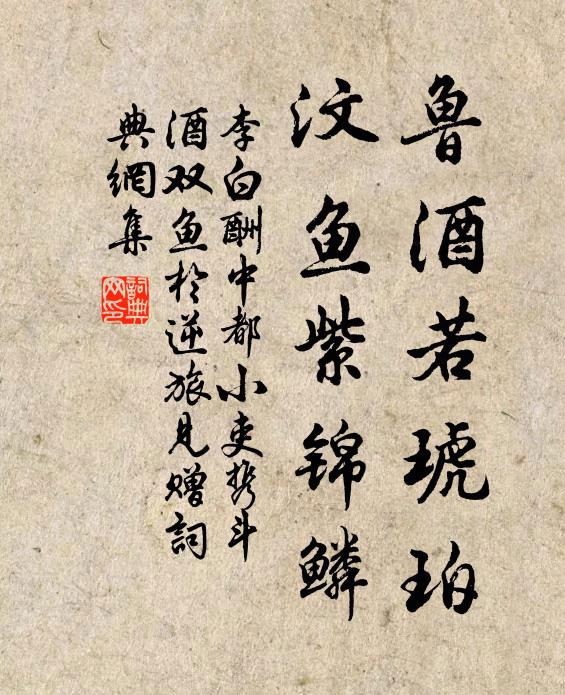 鲁酒若琥珀
汶鱼紫锦鳞
李白酬中都小吏携斗
酒双鱼于逆旅见赠詞
典網集
詞典
网印